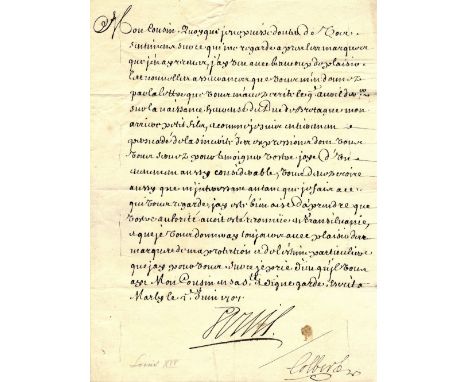 Mon Cousin. Quoyque je ne puisse douter de vos
sentimens sur ce qui me regarde apres les marques
que j'en ay receues, j'ay veu avec beaucoup de plaisir
les nouvelles assurances que vous m'en donnez
par la lettre que vous m'avez ecrite le 9e avril
sur la naissance heureuse du Duc de Bretagne mon
arriere petit fils, et comme je suis entierement
persuadé de la sincerité des expressions dont vous
vous servez pour temoigner votre joye d'un
evenement aussy considerable, vous devez croire
aussy que m'interessant autant que je fais a ce
qui vous regarde, j'ay esté bien aise d'aprendre que
votre autorité avoit esté reconnue en Transilvanie,
et que je vous donneray toujours avec plaisir des
marques de ma protection et de l'estime particuliere
que j'ay pour vous. Sur ce je prie Dieu qu'il vous
ayt Mon Cousin en sa ste et digne garde. Ecrit a
Marly le juin 1707.
Louis
Colbert
Louis XIV